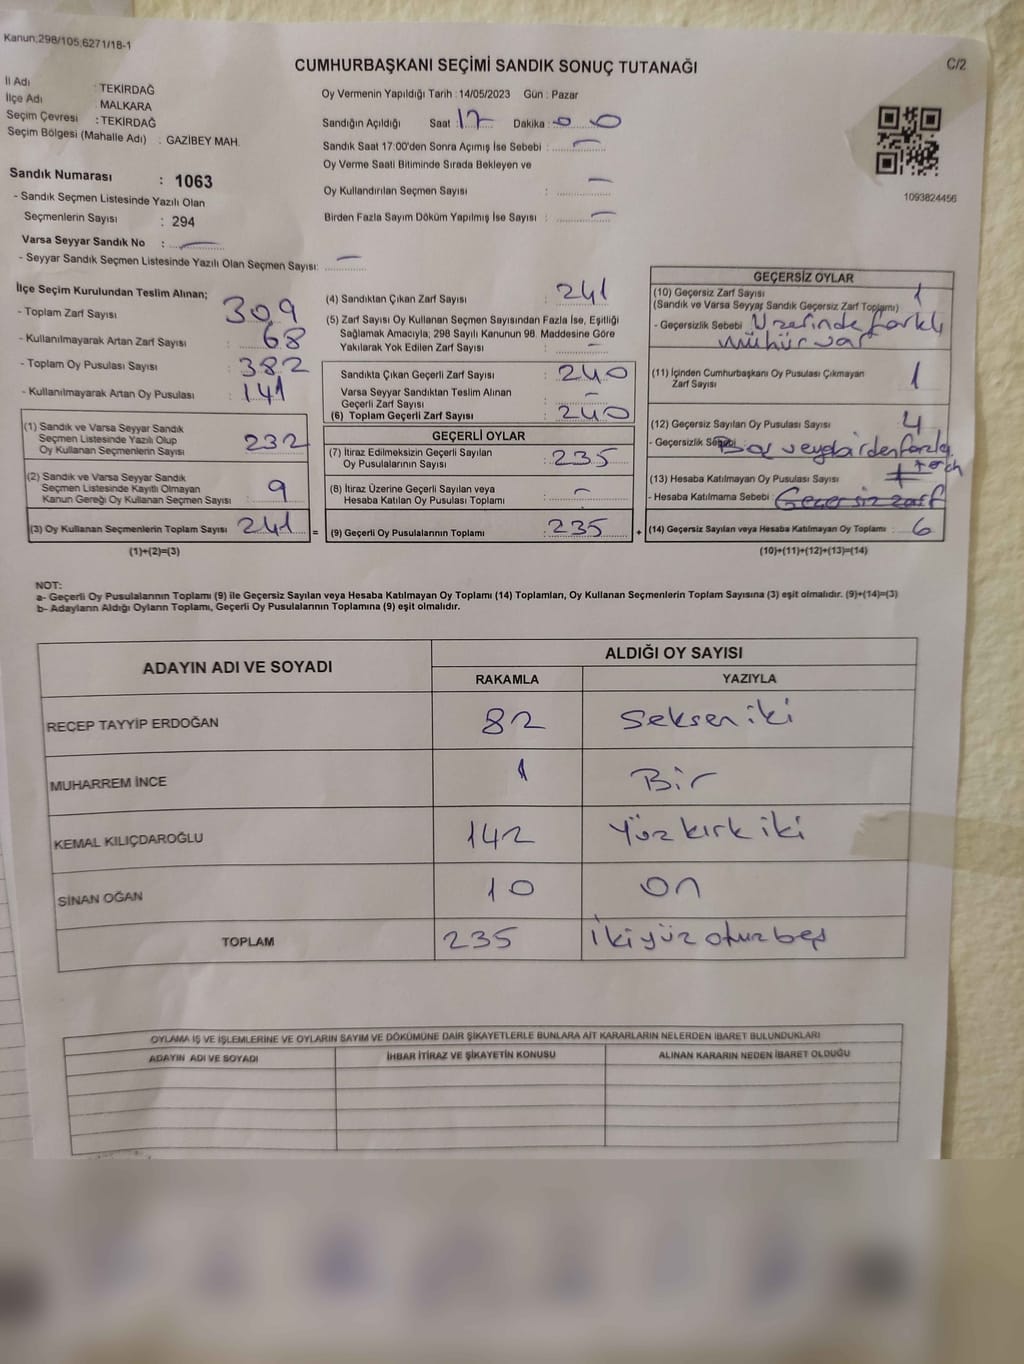 Kanun:298/105,6271/18-1
C/2
CUMHURBAŞKANI SEÇİMİ SANDIK SONUÇ TUTANAĞI
İl Adı : TEKİRDAĞ
İlçe Adı : MALKARA
Seçim Çevresi : TEKİRDAĞ
Seçim Bölgesi (Mahalle Adı) : GAZİBEY MAH.
Oy Vermenin Yapıldığı Tarih : 14/05/2023 Gün : Pazar
Sandığın Açıldığı Saat 17 Dakika 00
Sandık Saat 17:00'den Sonra Açımış İse Sebebi : —
Oy Verme Saati Bitiminde Sırada Bekleyen ve
Oy Kullandırılan Seçmen Sayısı : —
Birden Fazla Sayım Döküm Yapılmış İse Sayısı : —
1093824456
Sandık Numarası : 1063
- Sandık Seçmen Listesinde Yazılı Olan
Seçmenlerin Sayısı : 294
Varsa Seyyar Sandık No : —
- Seyyar Sandık Seçmen Listesinde Yazılı Olan Seçmen Sayısı: —
İlçe Seçim Kurulundan Teslim Alınan;
- Toplam Zarf Sayısı : 309
- Kullanılmayarak Artan Zarf Sayısı : 68
- Toplam Oy Pusulası Sayısı : 382
- Kullanılmayarak Artan Oy Pusulası : 141
(1) Sandık ve Varsa Seyyar Sandık
Seçmen Listesinde Yazılı Olup
Oy Kullanan Seçmenlerin Sayısı : 232
(2) Sandık ve Varsa Seyyar Sandık
Seçmen Listesinde Kayıtlı Olmayan
Kanun Gereği Oy Kullanan Seçmen Sayısı : 9
(3) Oy Kullanan Seçmenlerin Toplam Sayısı : 241 =
(1)+(2)=(3)
(4) Sandıktan Çıkan Zarf Sayısı : 241
(5) Zarf Sayısı Oy Kullanan Seçmen Sayısından Fazla İse, Eşitliği
Sağlamak Amacıyla; 298 Sayılı Kanunun 98. Maddesine Göre
Yakılarak Yok Edilen Zarf Sayısı : —
Sandıkta Çıkan Geçerli Zarf Sayısı : 240
Varsa Seyyar Sandıktan Teslim Alınan
Geçerli Zarf Sayısı : —
(6) Toplam Geçerli Zarf Sayısı : 240
GEÇERLİ OYLAR
(7) İtiraz Edilmeksizin Geçerli Sayılan
Oy Pusulalarının Sayısı : 235
(8) İtiraz Üzerine Geçerli Sayılan veya
Hesaba Katılan Oy Pusulası Toplamı : —
(9) Geçerli Oy Pusulalarının Toplamı : 235 +
GEÇERSİZ OYLAR
(10) Geçersiz Zarf Sayısı : 1
(Sandık ve Varsa Seyyar Sandık Geçersiz Zarf Toplamı)
- Geçersizlik Sebebi : Üzerinde farklı
mühür var
(11) İçinden Cumhurbaşkanı Oy Pusulası Çıkmayan
Zarf Sayısı : 1
(12) Geçersiz Sayılan Oy Pusulası Sayısı : 4
- Geçersizlik Sebebi : Boş veya birden fazla
tercih
(13) Hesaba Katılmayan Oy Pusulası Sayısı
- Hesaba Katılmama Sebebi : Geçersiz zarf
(14) Geçersiz Sayılan veya Hesaba Katılmayan Oy Toplamı : 6
(10)+(11)+(12)+(13)=(14)
NOT:
a- Geçerli Oy Pusulalarının Toplamı (9) ile Geçersiz Sayılan veya Hesaba Katılmayan Oy Toplamı (14) Toplamları, Oy Kullanan Seçmenlerin Toplam Sayısına (3) eşit olmalıdır. (9)+(14)=(3)
b- Adayların Aldığı Oyların Toplamı, Geçerli Oy Pusulalarının Toplamına (9) eşit olmalıdır.
ADAYIN ADI VE SOYADI
ALDIĞI OY SAYISI
RAKAMLA YAZIYLA
RECEP TAYYİP ERDOĞAN 82 Seksen iki
MUHARREM İNCE 1 Bir
KEMAL KILIÇDAROĞLU 142 Yüz kırk iki
SİNAN OĞAN 10 On
TOPLAM 235 İki yüz otuz beş
OYLAMA İŞ VE İŞLEMLERİNE VE OYLARIN SAYIM VE DÖKÜMÜNE DAİR ŞİKAYETLERLE BUNLARA AİT KARARLARIN NELERDEN İBARET BULUNDUKLARI
ADAYIN ADI VE SOYADI İHBAR İTİRAZ VE ŞİKAYETİN KONUSU ALINAN KARARIN NEDEN İBARET OLDUĞU